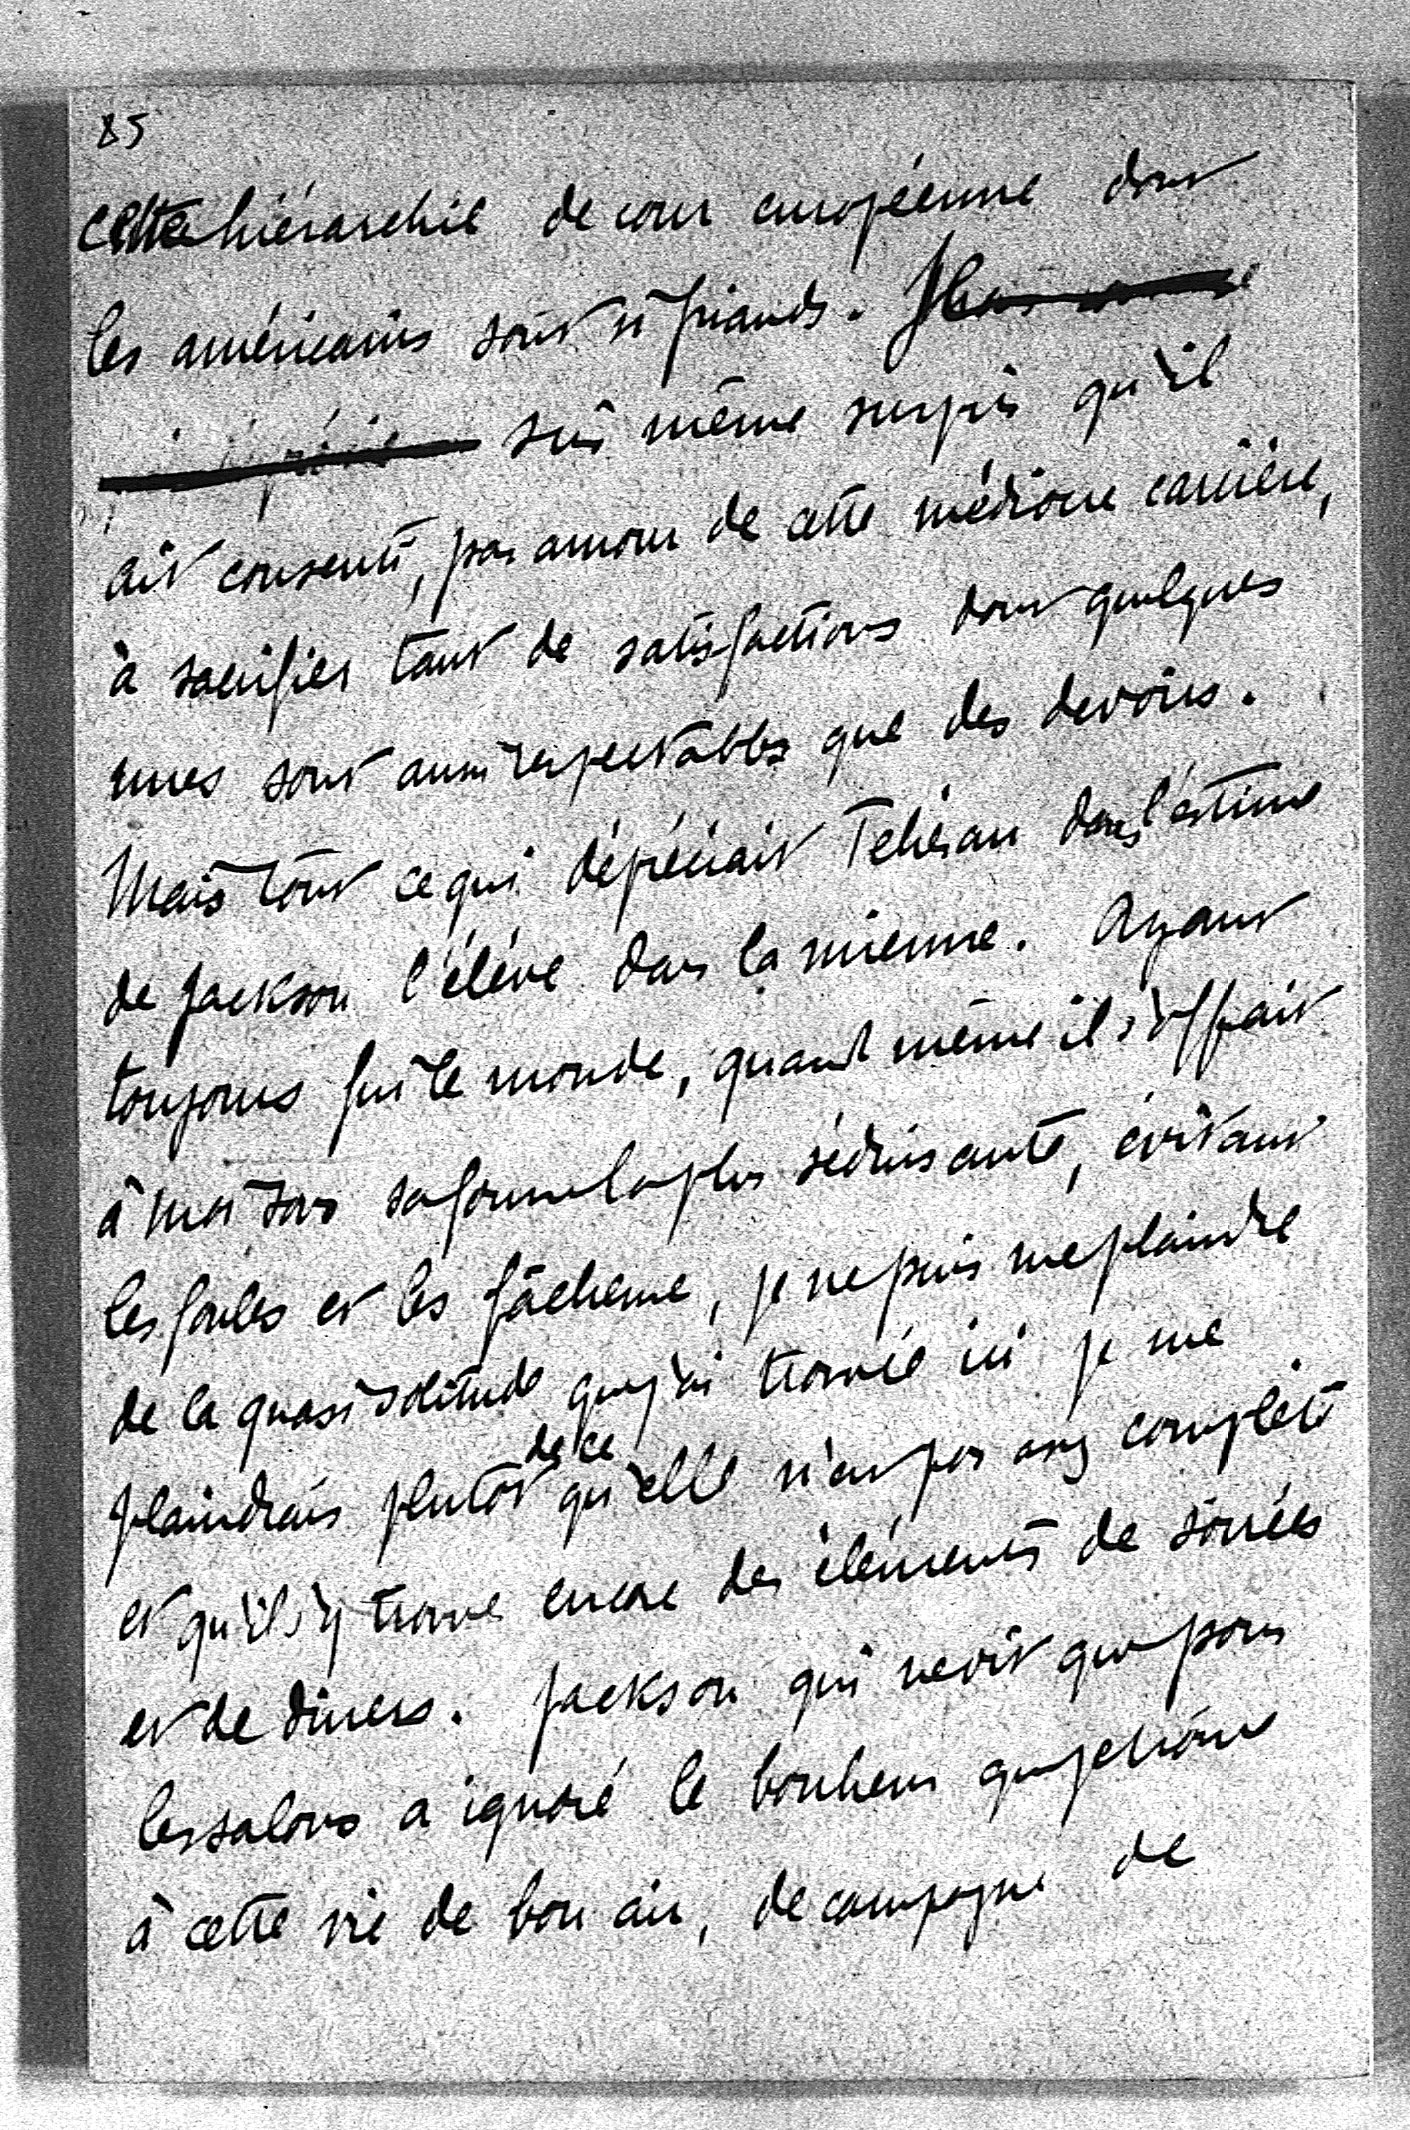 85
cette hiérarchie de cour européenne dont
les américains sont si friands. Je
suis même surpris qu'il
ait consenti, par amour de cette médiocre carrière,
à sacrifier tant de satisfactions dont quelques
unes sont aussi respectables que des devoirs.
Mais tout ce qui dépréciait Téhéran dans l'estime
de Jackson l'élève dans la mienne. Ayant
toujours fui le monde, quand même il s'offrait
à moi sous sa forme la plus séduisante, évitant
les foules et les fâcheux, je ne puis me plaindre
de la quasi solitude que j'ai trouvée ici je me
plaindrais plutôt de ce qu'elle n'est pas assez complète
et qu'il s'y trouve encore des éléments de soirées
et de diners. Jackson qui ne vit que pour
les salons a ignoré le bonheur que je trouve
à cette vie de bon air, de campagne de